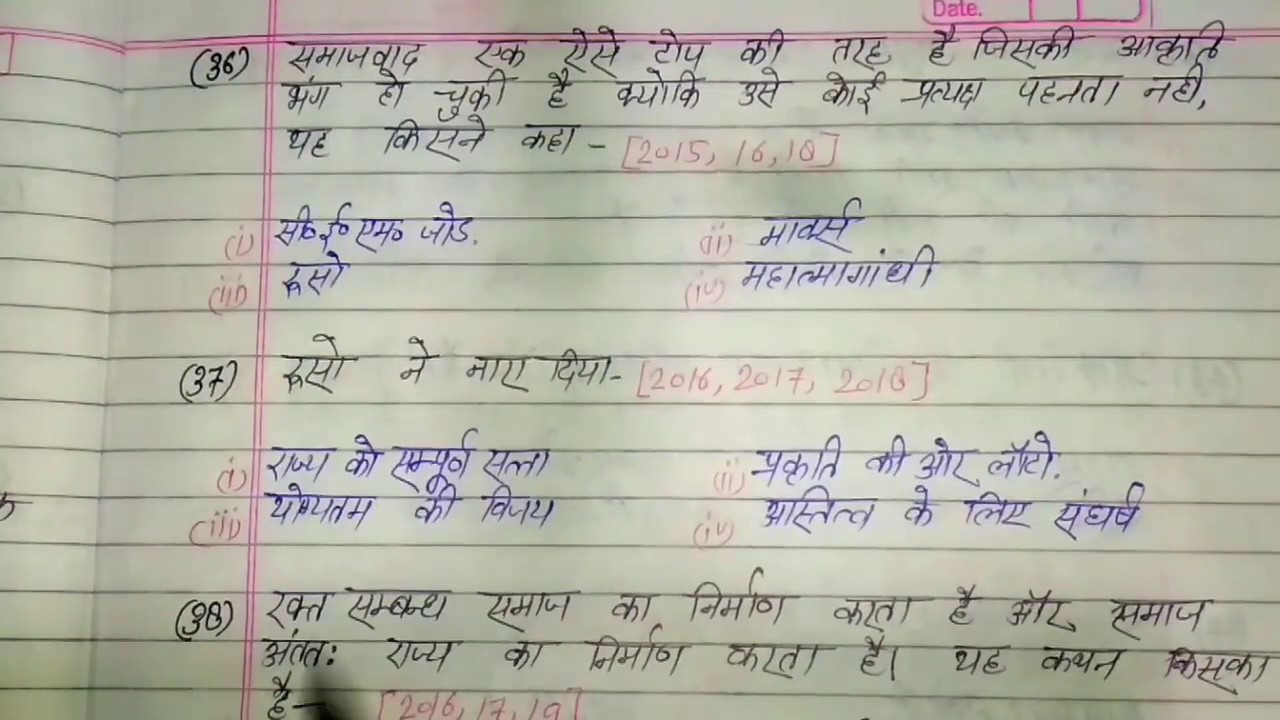 Date.
(36) समाजवाद एक ऐसे टोप की तरह है जिसकी आकृति
भंग हो चुकी है क्योकि उसे कोई प्रत्यक्ष पहनता नही,
यह किसने कहा - [2015, 16, 18]
(i) सी० ई० एम० जोड. (ii) मार्क्स
(iii) रूसो (iv) महात्मागांधी
(37) रूसो ने नारा दिया- [2016, 2017, 2018]
(i) राज्य को सम्पूर्ण सत्ता (ii) प्रकृति की ओर लौटो.
(iii) योग्यतम की विजय (iv) अस्तित्व के लिए संघर्ष
(38) रक्त सम्बन्ध समाज का निर्माण करता है और समाज
अंतत: राज्य का निर्माण करता है। यह कथन किसका
है- [2016, 17, 19]